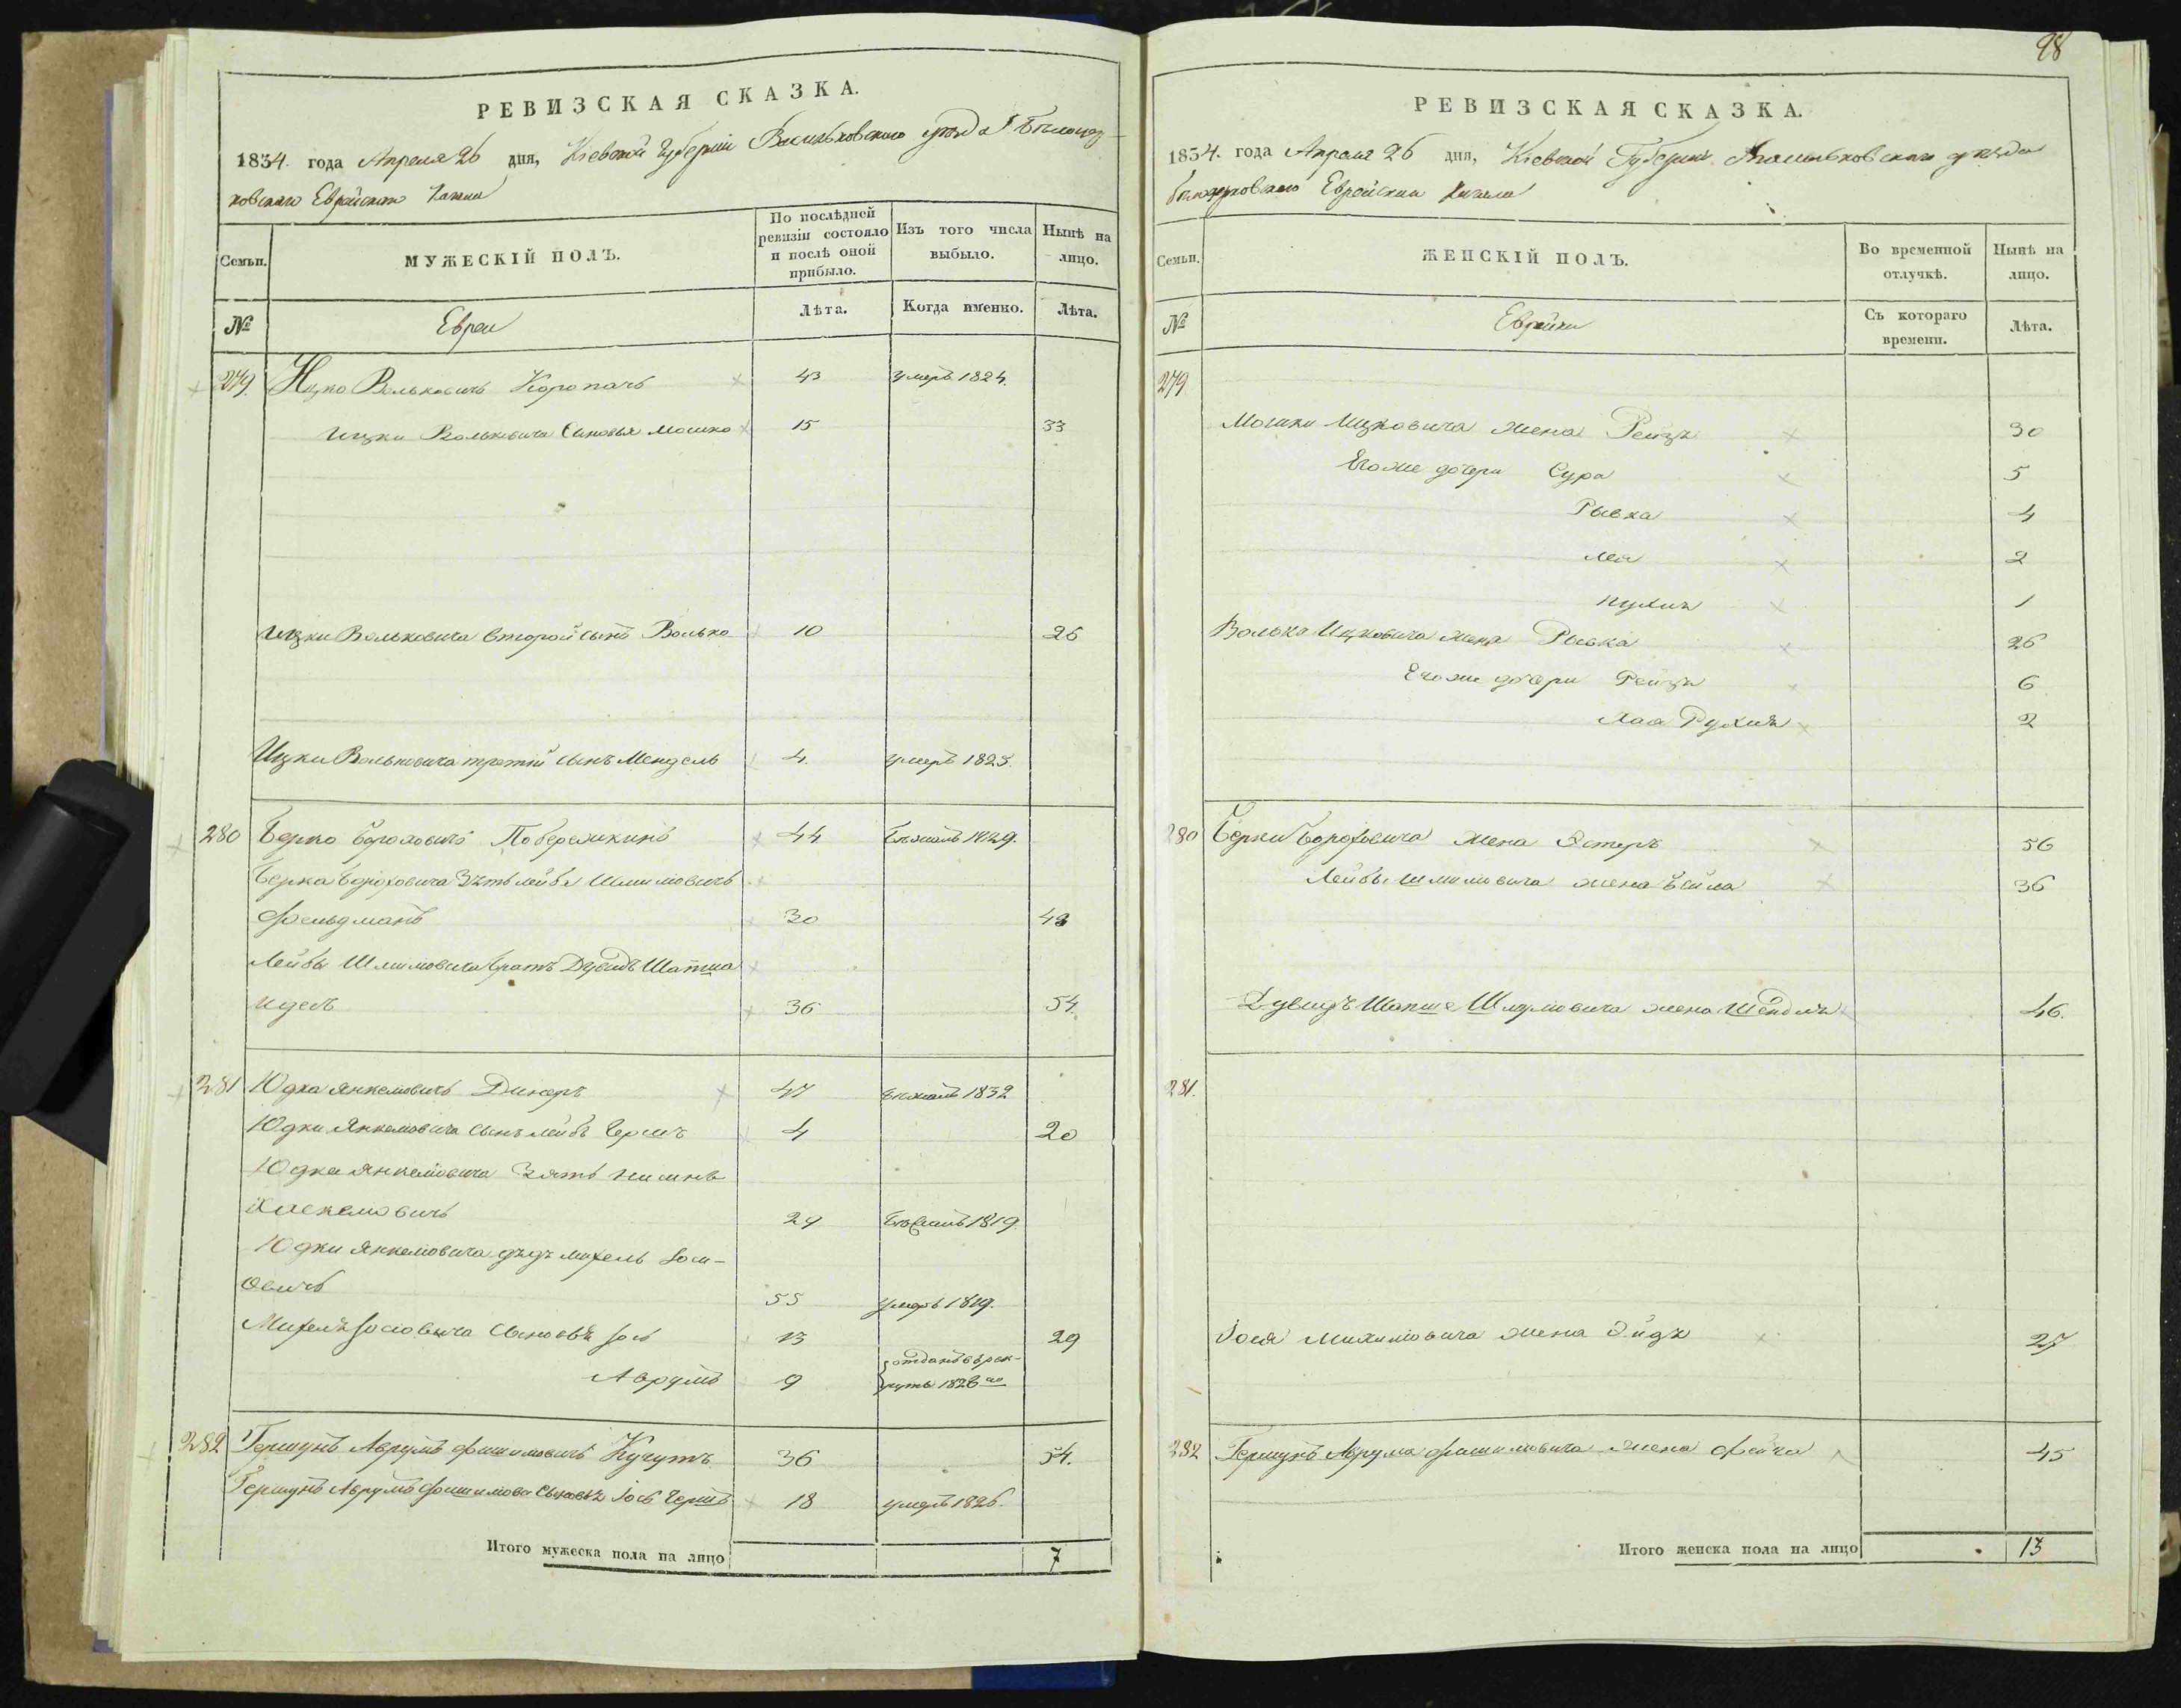 РЕВИЗСКАЯ СКАЗКА.
1834. года Апреля 26 дня, Кіевской Губерніи Васильковскаго уезда Белоцер-
ковскаго Еврейскаго Кагала
Семьи.
МУЖЕСКІЙ ПОЛЪ.
По послѣдней ревизіи состояло и послѣ оной прибыло.
Изъ того числа выбыло.
Нынѣ на лицо.
№
Евреи
Лѣта.
Когда именно.
Лѣта.
279. Ицко Вольковичъ Коропачъ 43 умеръ 1824.
Ицки Вольковича Сыновья Мошко 15 33
Ицки Вольковича второй сынъ Волько 10 26
Ицки Вольковича третій сынъ Мендель 4. умеръ 1823.
280 Берко Бороховичъ Побережкинъ 44 Бежалъ 1829.
Берка Бороховича Зять Лейба Шмимовичъ
Фельдманъ 30 48
Лейбы Шмимовича братъ Дувидъ Шапша
Идель 36 54.
281 Юдка Янкелювичъ Динеръ 47 Бежалъ 1832
Юдки Янкеловича сынъ Лейбъ Гершъ 4 20
Юдка Янкелювича Зять
29 1819.
Юдки Янкеловича дядъ Михель Іосі-
овичъ
55 умеръ 1819.
Михеля Іосіовича Сыновья Іось 13 29
Аврумъ 9 отданъ въ рек-
руты 1828 го
282 Гершунъ Аврумъ Фишимовичъ Кучутъ 36 54.
Гершунъ Аврумъ Фишимова Сыновья Іось Гершъ 18 умеръ 1826.
Итого мужеска пола на лицо 7
98
РЕВИЗСКАЯ СКАЗКА.
1834. года Апреля 26 дня, Кіевской Губерніи Васильковскаго уезда
Белоцерковскаго Еврейскаго Кагала
Семьи.
ЖЕНСКІЙ ПОЛЪ.
Во временной отлучкѣ.
Нынѣ на лицо.
№
Еврейки
Съ котораго времени.
Лѣта.
279
Мошки Ицковича жена Рейзя 30
Его же дочери Сура 5
Рывка 4
Лея 2
1
Волька Ицковича жена Рывка 26
Его же дочери Рейзя 6
Хая Рухля 2
280 Берки Бороховича жена Эстеръ 56
Лейбы Шмимовича жена Бейла 36
Дувидъ Шапше Шмумовича жена Шендля 46.
281.
Іося Михимовича жена Эйдя 27
282 Гершунъ Аврума Фишимовича жена Фейга 45
Итого женска пола на лицо 13